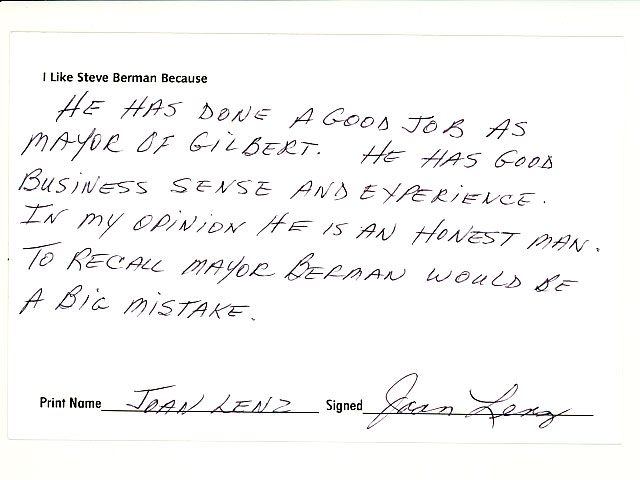 I Like Steve Berman Because
HE HAS DONE A GOOD JOB AS
MAYOR OF GILBERT. HE HAS GOOD
BUSINESS SENSE AND EXPERIENCE.
IN MY OPINION HE IS AN HONEST MAN.
TO RECALL MAYOR BERMAN WOULD BE
A BIG MISTAKE.
Print Name JOAN LENZ Signed Joan Lenz